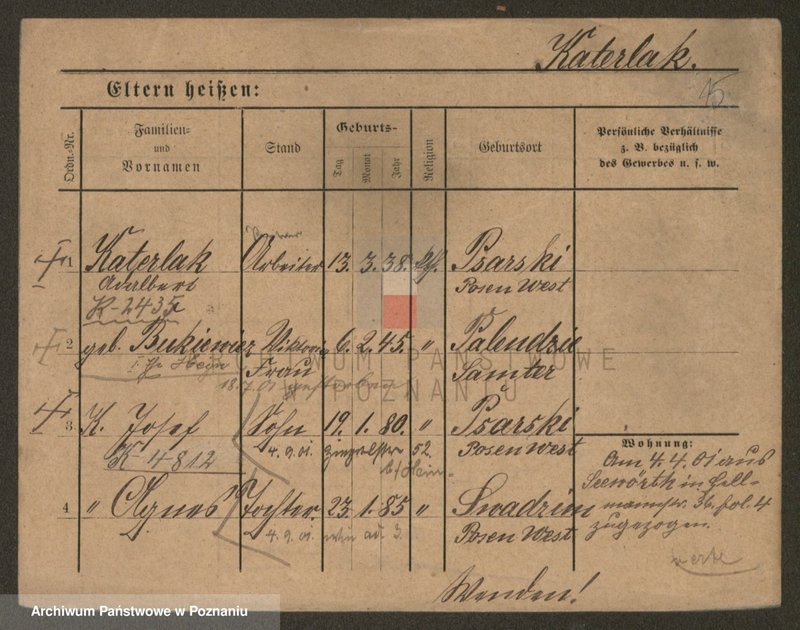 Katerlak.
15.
Eltern heißen:
Ordn.-Nr.
Familien- und Vornamen
Stand
Geburts-
Tag
Monat
Jahr
Religion
Geburtsort
Persönliche Verhältnisse
z. B. bezüglich
des Gewerbes u. s. w.
1 Katerlak Arbeiter 13. 3. 38. Psarski
Adalbert Posen West
K-2435
2 geb. Bukiewicz Viktoria 6. 2. 45. " Palendzie
Frau Samter
18.7.01 gestorben
3 K. Josef Sohn 19. 1. 80. " Psarski
4. 9. 01. 52. Posen West
K 4812
4 " Agnes Tochter 23. 1. 85 " Swadzim
4. 9. 01. Posen West
Wohnung:
Am 4. 4. 01 aus
in
36. fol. 4
zugezogen.
Wenden!
ARCHIWUM PAŃSTWOWE
W POZNANIU
Archiwum Państwowe w Poznaniu